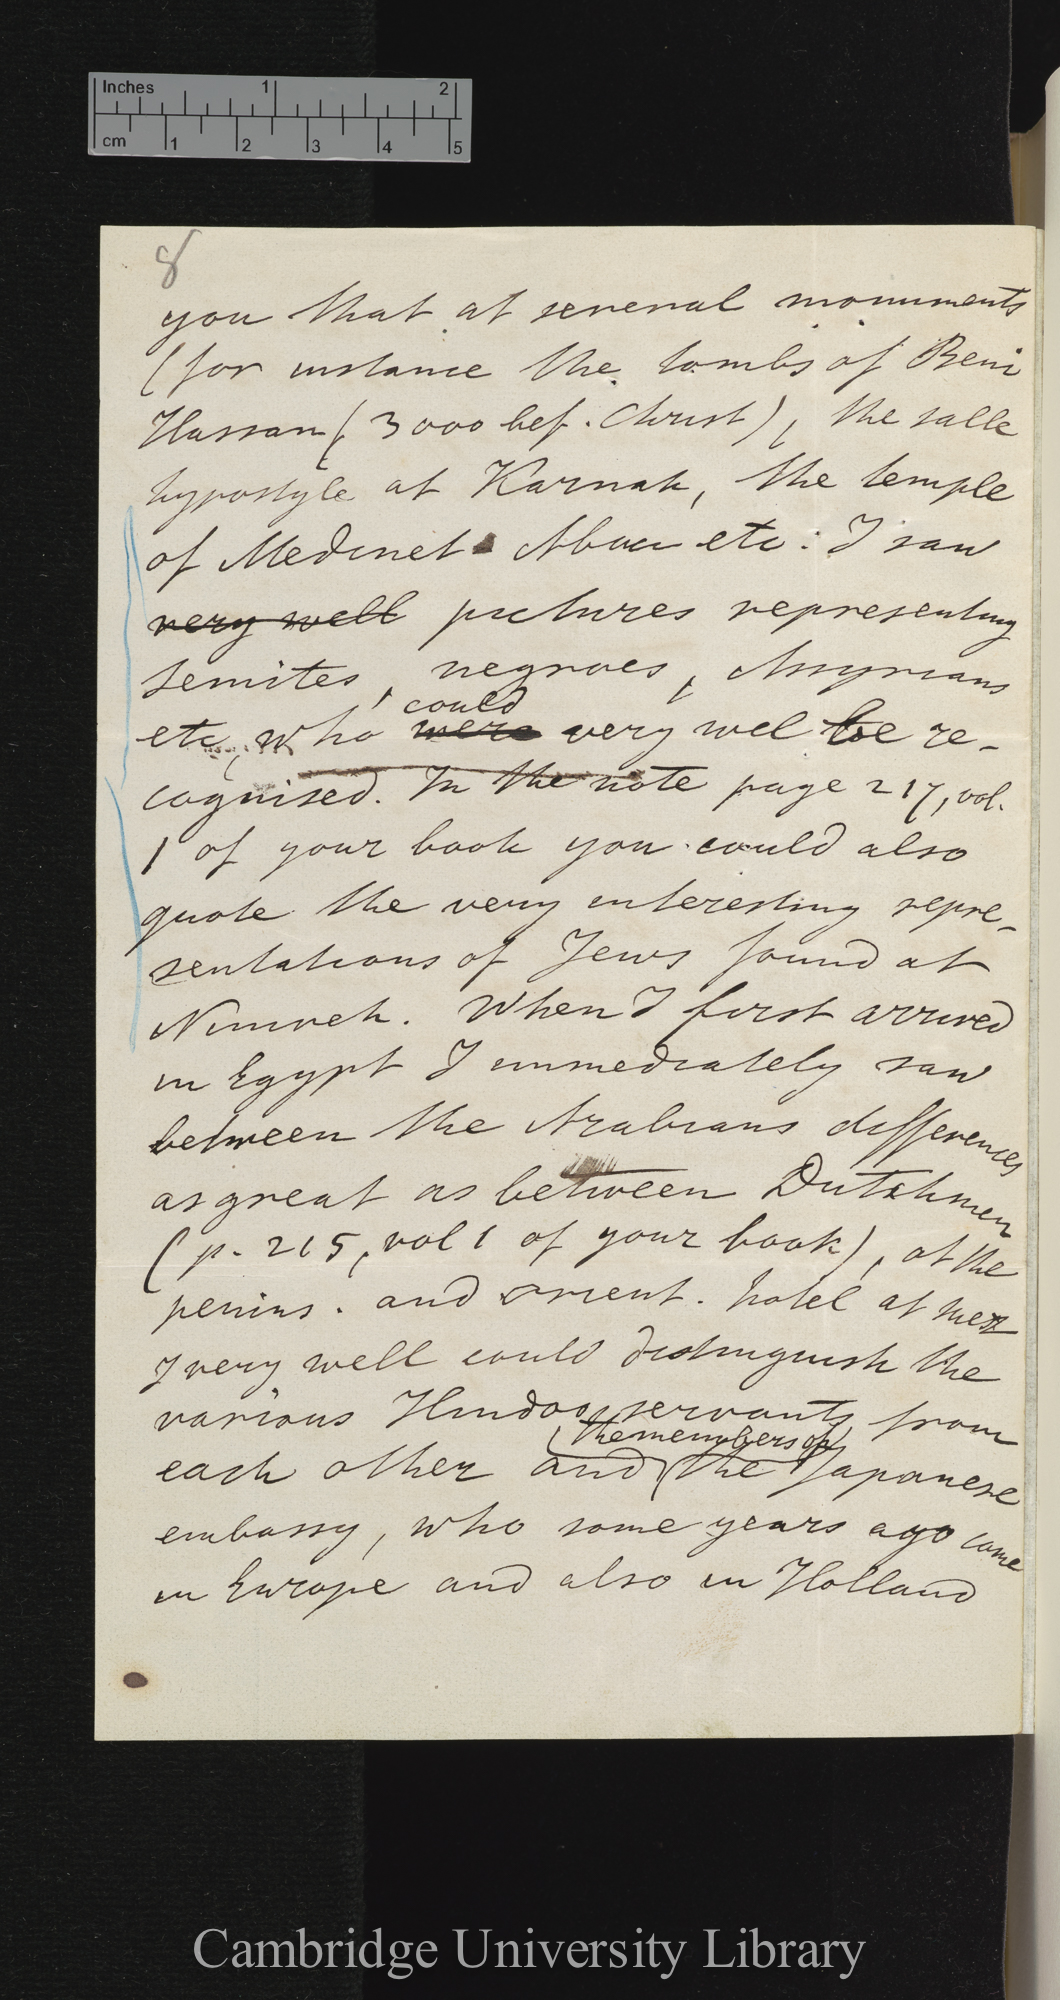 Inches 1 2
cm 1 2 3 4 5
8
you that at several monuments
(for instance the tombs of Beni
Hassan (3000 bef. Christ), the salle
hypostyle at Karnak, the temple
of Medinet Abou etc: I saw
very well pictures representing
semites, negroes, Assyrians
could
etc, who were very wel be re-
cognised. In the note page 217, vol.
1 of your book you could also
quote the very interesting repre-
sentations of Jews found at
Nimveh. When I first arrived
in Egypt I immediately saw
between the Arabians differences
as great as between Dutchmen
(p. 215, vol 1 of your book), at the
penins. and orient. hotel at Suez
I very well could distinguish the
various Hindoo servants from
the members of
each other and the Japanese
embassy, who some years ago came
in Europe and also in Holland
Cambridge University Library